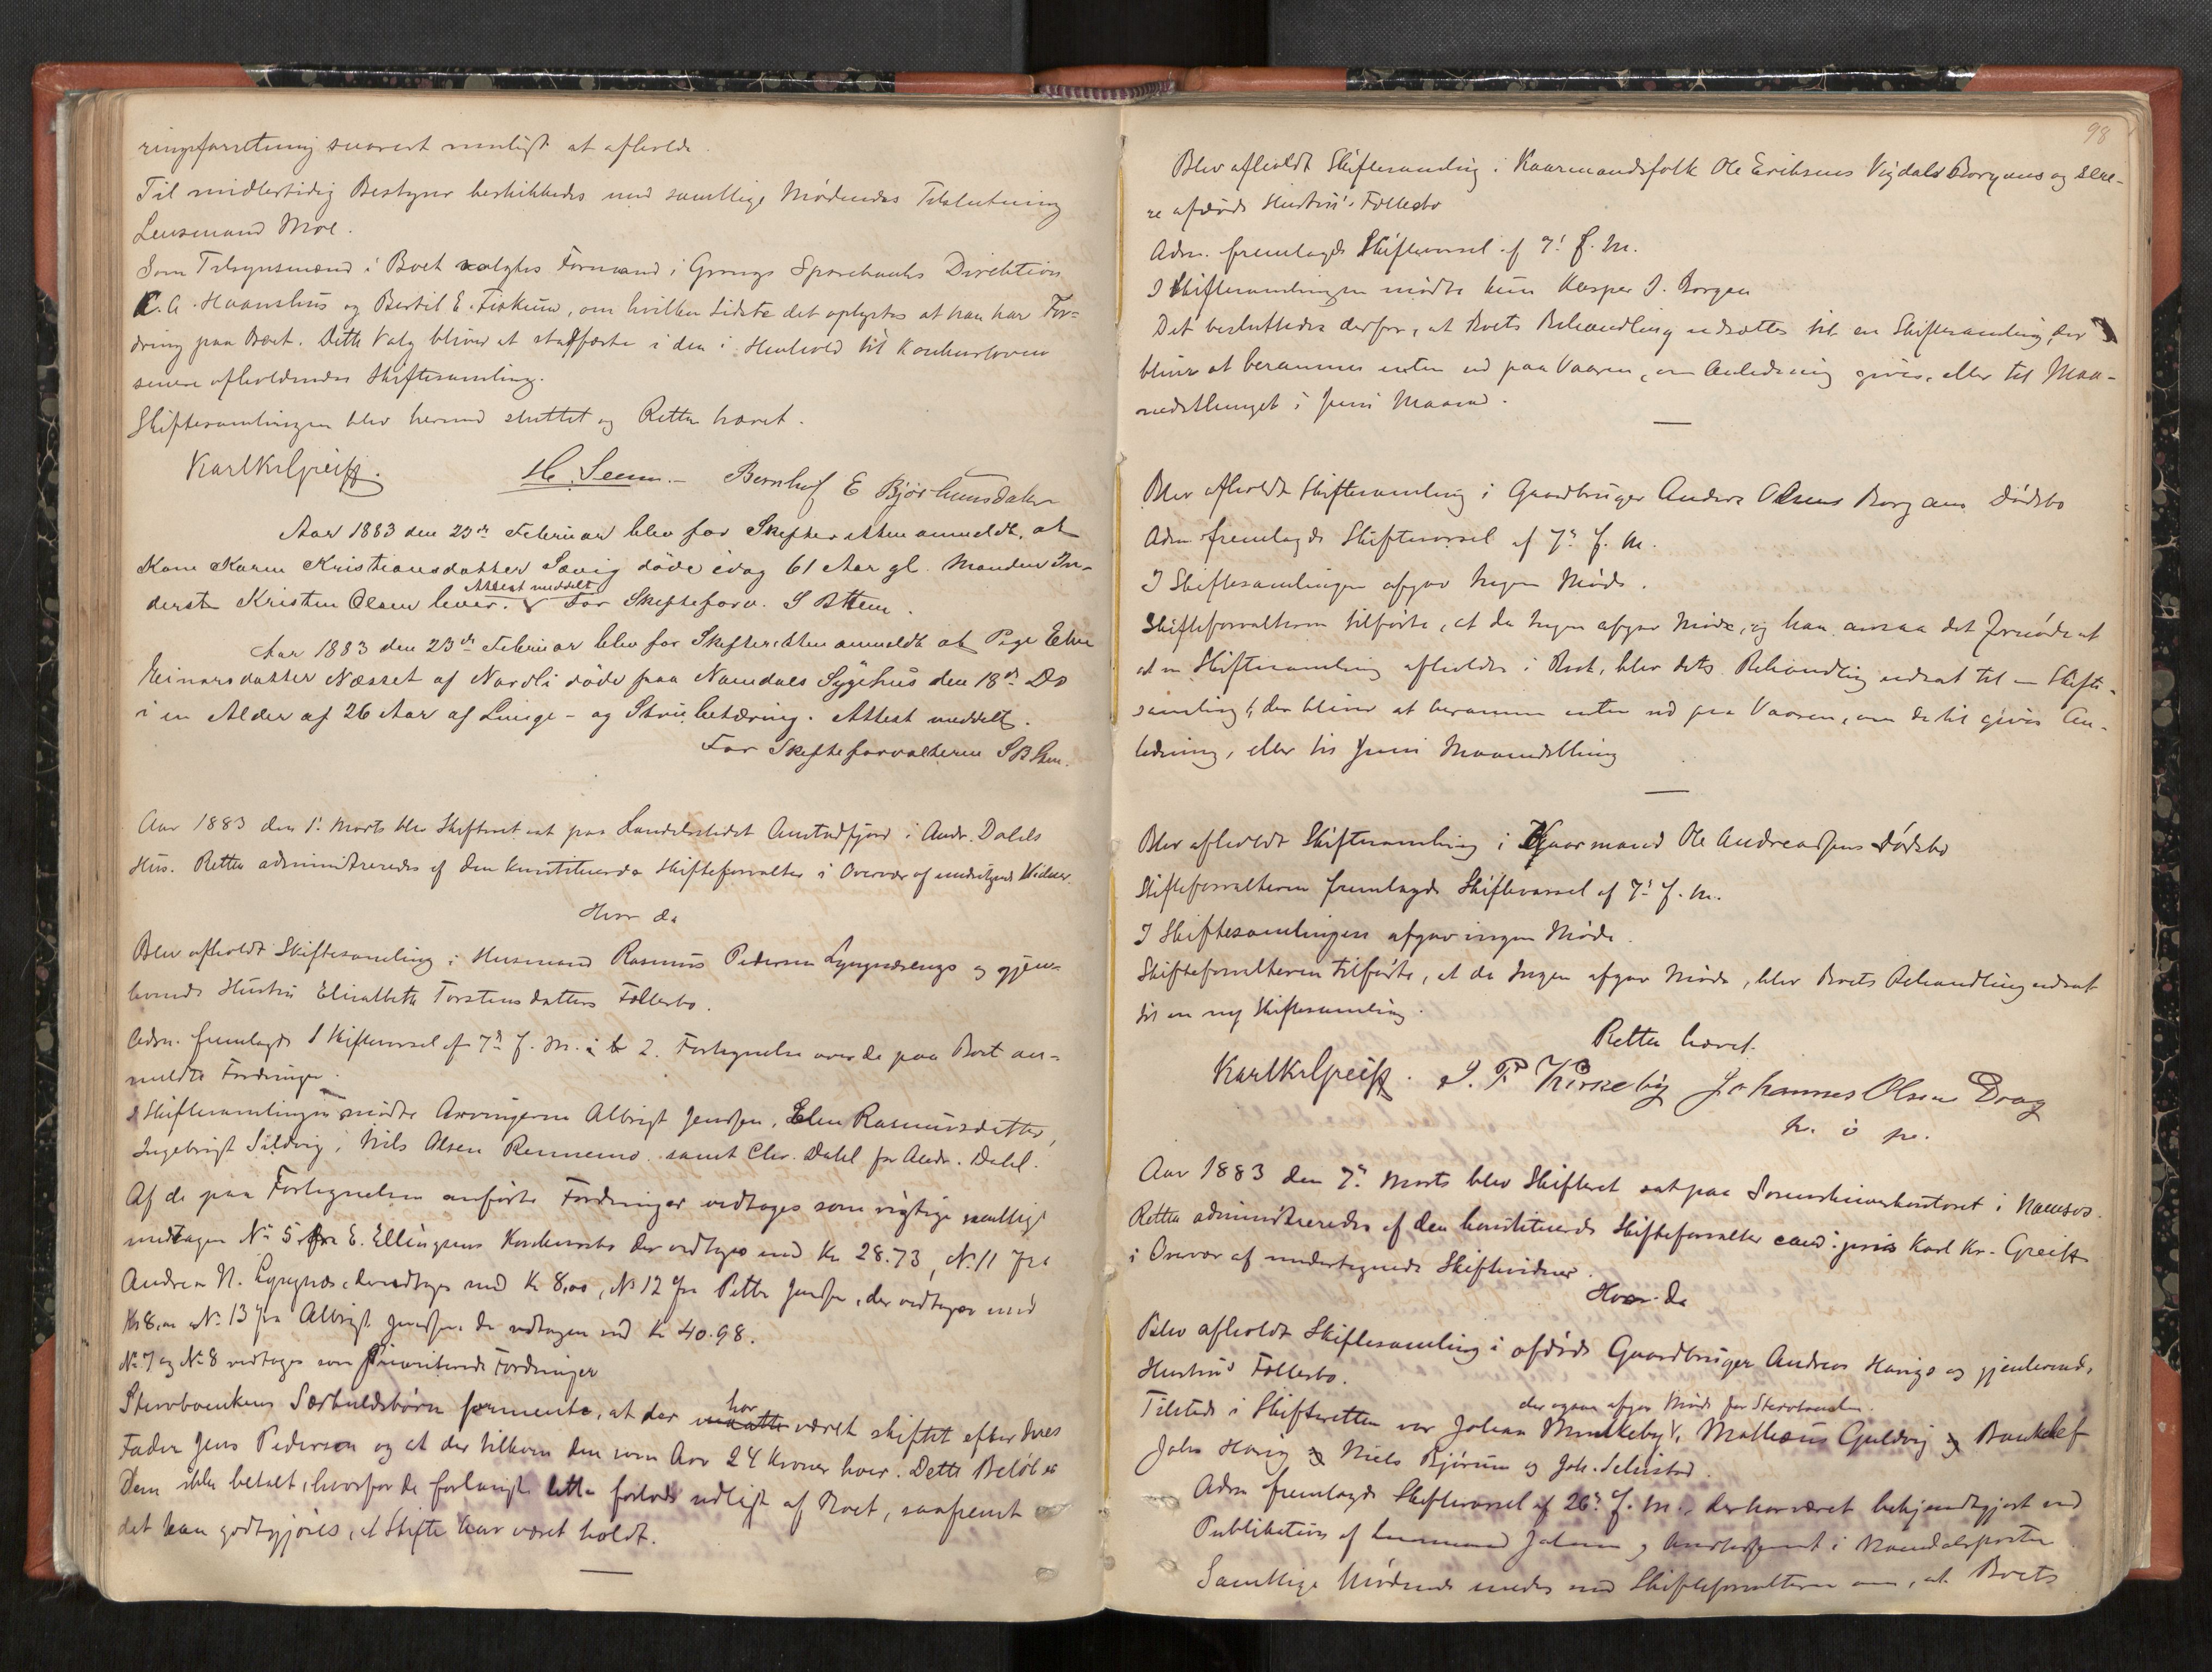 ringsforretning snarest muligt at afholde.
Til midlertidig Bestyrer beskikkedes med samtlige Mødendes Tilslutning
Lensmand Moe.
Som Tilsynsmænd i Boet valgtes Formand i Grongs Sparebanks Direktion
C. A. Haanshus og Bertil E. Fiskum, om hvilken Sidste det oplystes at han har For-
dring paa Boet. Dette Valg bliver at stadfæste i den i Henhold til Konkursloven
senere afholdendes Skiftesamling.
Skiftesamlingen blev hermed sluttet og Retten hævet.
Karl Kr Greiff. H. Seem. Bernhof E Bjørhumsdalen
Aar 1883 den 23de Februar blev for Skifteretten anmeldt, at
Kone Karen Kristiansdatter Sævig døde idag 61 Aar gl. Manden In-
derst Kristen Olsen lever. Attest meddelt For Skifteforv. S Bthen.
Aar 1883 den 23de Februar blev for Skifteretten anmeldt at Pige Elen
Einarsdatter Næsset af Nordli døde paa Namdals Sygehus den 18de Ds
i en Alder af 26 Aar af Lunge- og Strubetæring. Attest meddelt.
For Skifteforvalteren S Bthen.
Aar 1883 den 1' Marts blev Skifteret sat paa Handelsstedet i Andr. Dahls
Hus. Retten administreredes af den konstituerede Skifteforvalter i Overvær af undertegnede Vidner.
Hvor da
Blev afholdt Skiftesamling i Husmand Rasmus Pedersen Lyngsnæsengs og gjen-
levende Hustru Elisabeth Torstensdatters Fællesbo.
Adm. fremlagde 1 Skiftevarsel af 7de f. M. & 2. Fortegnelse over de paa Boet an-
meldte Fordringer.
I Skiftesamlingen mødte Arvingerne Albrigt Jenssen, Elen Rasmusdatter,
Ingebrigt Sildvig, Nils Olsen Rennemo samt Chr. Dahl for Andr. Dahl.
Af de paa Fortegnelsen anførte Fordringer vedtages som rigtige samtlige
undtagen No 5 fra E. Ellingsens Konkursbo der vedtages med Kr 28.73, No 11 fra
Andreas N. Lyngsnes, der vedtages med Kr 8,00, No 12 fra Petter Jenssen, der vedtages med
Kr 8,00 No 13 fra Albrigt Jenssen, der vedtages med Kr 40.98.
No 7 og No 8 vedtages som prioriterede Fordringer
Stervboenkens Særkuldsbørn formente, at der har været skiftet efter deres
Fader Jens Pedersen og at der tilkom dem som Arv 24 Kroner hver. Dette Beløb er
Dem ikke betalt, hvorfor de forlangte dette forlods udligt af Boet, saafremt
det kan godtgjøres, at Skifte har været holdt.
98
Blev afholdt Skiftesamling i Kaarmandsfolk Ole Eriksens Vigdals Borgans og sene-
re afdøde Hustrus Fællesbo
Adm. fremlagde Skiftevarsel af 7' f. M.
I Skiftesamlingen mødte kun Kasper J. Borgan
Det besluttedes derfor, at Boets Behandling udsættes til en Skiftesamling, der
bliver at berammes enten ud paa Vaaren, om Anledning gives, eller til Maa-
nedsthinget i Juni Maaned.
Blev afholdt Skiftesamling i Gaardbruger Anders Olsens Borgans Dødsbo
Adm fremlagde Skiftevarsel af 7de f. M.
I Skiftesamlingen afgav Ingen Møde.
Skifteforvalteren tilførte, at da Ingen afgav Møde, og han ansaa det fornødent
at en Skiftesamling afholdes i Boet, blev dets Behandling udsat til en Skifte-
samling, der bliver at beramme enten ud paa Vaaren, om dertil gives An-
ledning, eller til Juni Maanedsthing
Blev afholdt Skiftesamling i Kaarmand Ole Andreassens Dødsbo
Skifteforvalteren fremlagde Skiftevarsel af 7' f. M.
I Skiftesamlingen afgav ingen Møde.
Skifteforvalteren tilførte, at da Ingen afgav Møde, blev Boets Behandling udsat
til en ny Skiftesamling.
Retten hævet.
Karl Kr Greiff. I. P. Kirkeby Johannes Olsen Drag
m. i p.
Aar 1883 den 7de Marts blev Skifteret sat paa Sorenskriverkontoret i Namsos.
Retten administreredes af den konstituerede Skifteforvalter cand. juris Karl Kr. Greiff
i Overvær af undertegnede Skiftevidner.
Hvor da
Blev afholdt Skiftesamling i afdøde Gaardbruger Andreas Havigs og gjenlevende
Hustrus Fællesbo.
der ogsaa afgav Møde for Stervboenken
Tilstede i Skifteretten var Johan Munkeby, Matheus Guldvig
Johs Havig og Niels Bjørum og Joh. Selnstad.
Adm fremlagde Skiftevarsel af 26de f. M., der har været bekjendtgjort ved
Publikation af Lensmand og i Namdalsposten
Samtlige Mødende enedes med Skifteforvalteren om, at Boets